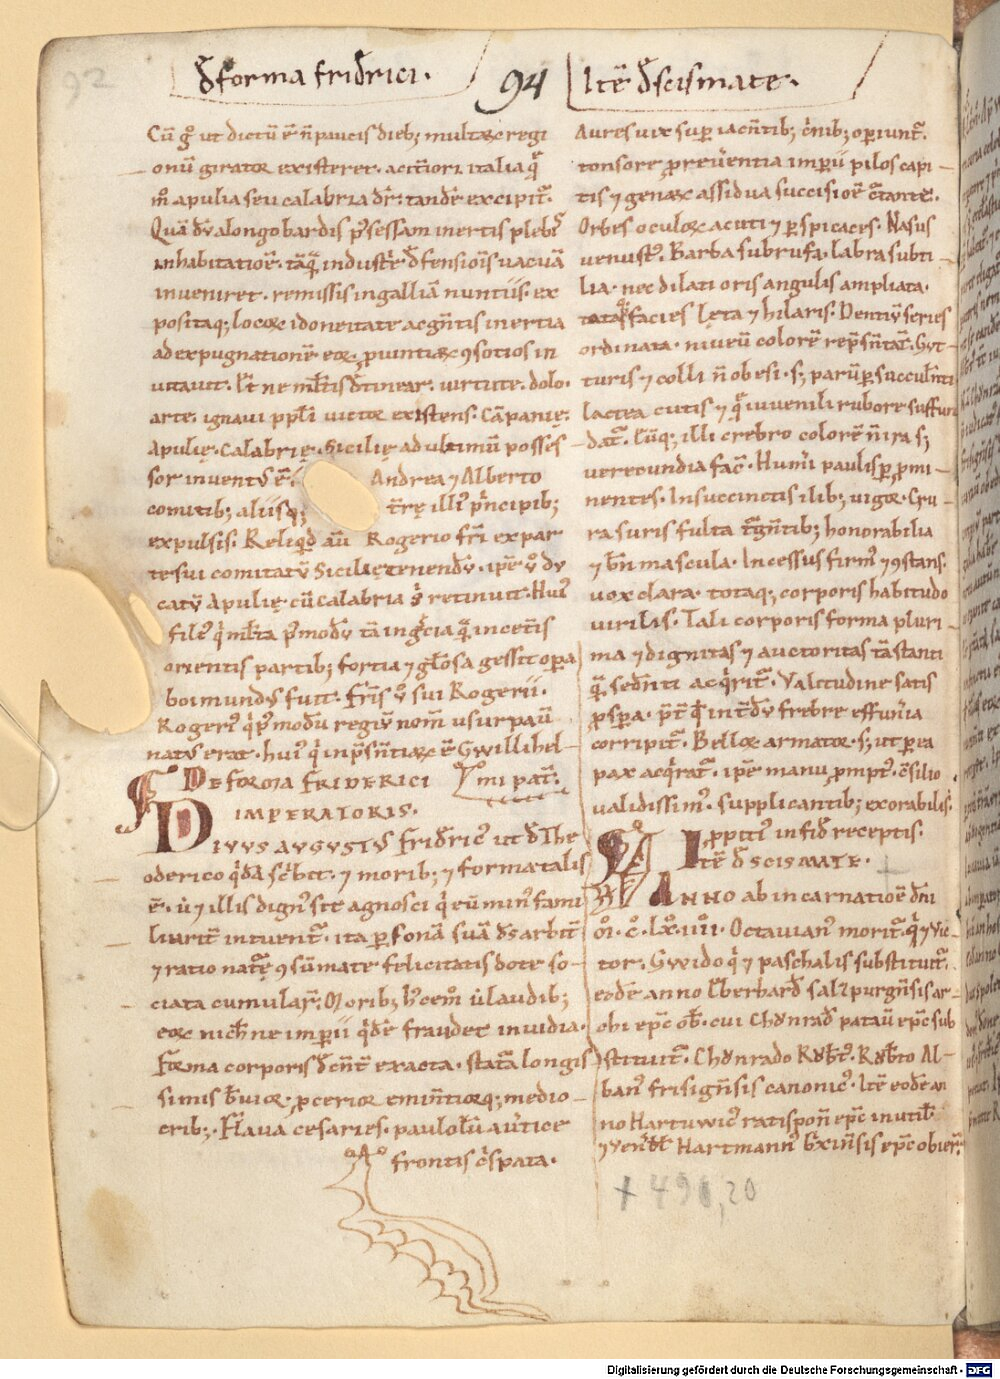 92
đforma friđrici.
94
Itē đscismate.
Cū gͦ ut dictū ē n̄ paucis dieb; multaꝝ regi
onū giratoꝝ existeret. aciti͞ori italia q̄
m̄ apulia seu calabria dr̄. tandē excipit᷑.
Quā dv̄ a longobardis p̄sessam inertis plebis
inhabitatiōe. tāq̄ industͥe đfensiōis vacuā
inveniret. remissis in galliā nuntiis. ex
positaq; locoꝝ idoneitate ac gn̄tis inertia
ad expugnationē eoꝝ ꝓvintiaꝝ ꝯsotios in
vitavit.
arte. ignavi ppl̄i victor existens. Cāpanie.
Apulię. Calabrię. Sicilię ad ultimū posses
sor inventꝰ ē. Andrea ⁊ Alberto
comitib; aliisq; t̄rę illiꝰ pͥncipib;
expulsis. Reliqͥd aū Rogerio fr̄i ex par
te sui comitatꝰ Sicilię tenendv̄. ipē ꝟ dv
catū Apulię cū calabria sͥ retinuit. Huiꝰ
filiꝰ qͥ ml̄ta p̄ modv̄ tā in gͣcia q̄ in cet̄is
orientis partib; fortia ⁊ gl̄osa gessit opera
boimundꝰ fuit. Fr̄is ꝟ sui Rogerii.
Rogeriꝰ qͥ p̄modū regiv̄ nom̄ usurpav̄
natꝰ erat. huiꝰ qͥ in p̄sn̄tiaꝝ ē Gwillihel
mi pat᷑.
DE FORMA FRIDERICI
IMPERATORIS.
DIVVS AVGVSTVS friđricꝰ ut đ The
oderico qͥdā scͥbit. ⁊ morib; ⁊ forma talis
ē. ut ⁊ illis dignꝰ sit agnosci qͥ eū minꝰ fami
liarit᷑ intuent᷑. ita ꝑsonā suā dꝰ arbit᷑
⁊ ratio natͥę ꝯsūmate felicitatis dote so
ciata cumular᷑. Morib; hͥcem̄ ut laudib;
eoꝝ nichͥ ne imp̄ii qͥdē fraudet invidia.
Forma corporis đcent᷑ exacta. statͣa longis
simis breuioꝝ, ꝓcerior eminētiorq; medio
crib;. Flava cesaries. paululū a vͥtice
frontis cͥspata.
Aures vix suꝑ iacn̄tib; cͥnib; operiunt᷑.
tonsore ꝓ reverentia imp̄ii pilos capi
tis ⁊ genaꝝ assidua succisiōe cͥtante.
Orbes oculoꝝ acuti ⁊ ꝑspicaces. Nasus
venustꝰ. Barba subrufa. labra subti
lia. nec dilati oris angulis ampliata.
totaq; facies lęta ⁊ hilaris. Dentiv̄ series
ordinata. niveū colorē rep̄sn̄tat. Gut
turis ⁊ colli n̄ obesi. s; parūꝑ succuln̄ti
lactea cutis ⁊ q̄ iuvenili rubore suffun
dat᷑. Eūq; illi crebro colorē n̄ ira s;
verecundia fac̄. Humͥi paulisꝑ ꝓmi
nentes. In succinctis ilib; vigor. Cru
ra suris fulta tͧgn̄tib; honorabilia
⁊ bn̄ mascula. Incessus firmꝰ ⁊ ꝯstans.
vox clara. totaq; corporis habitudo
virilis. Tali corporis forma pluri
ma ⁊ dignitas ⁊ auctoritas tā stanti
q̄. sedn̄ti acqͥrit᷑. Valitudine satis
ꝓspera.
corripit᷑. Belloꝝ amator. s; ut ꝑ ea
pax acqͥrat᷑. ipē manu ꝓmptꝰ. cͦsilio
validissimꝰ. supplicantib; exorabilis.
ꝓpitiꝰ in fiđ receptis.
Itē đ SCISMATE.
ANNO ab incarnatiōe dn̄i
ōi. c̊. lx̊. iiii̊. Octavianꝰ morit᷑. qͥ ⁊ vic
tor. Gwido qͥ ⁊ paschalis substituit᷑.
eodē anno Eberharđ salzpurgn̄sis ar
chi epc̄ ob̄. cui Chv̊nrađ pataū epc̄ sub
stituit᷑. Chv̊nrado Rv̊b̄tꝰ. Rv̊b̄to Al
banꝰ frisign̄sis canonicꝰ. Itē eodē an
no Hartuwicꝰ ratispon̄ epc̄ inutil᷑
⁊ Hartmannꝰ bͥxin̄sis epc̄ obier᷑.
+ 491,20
Digitalisierung gefördert durch die Deutsche Forschungsgemeinschaft · DFG